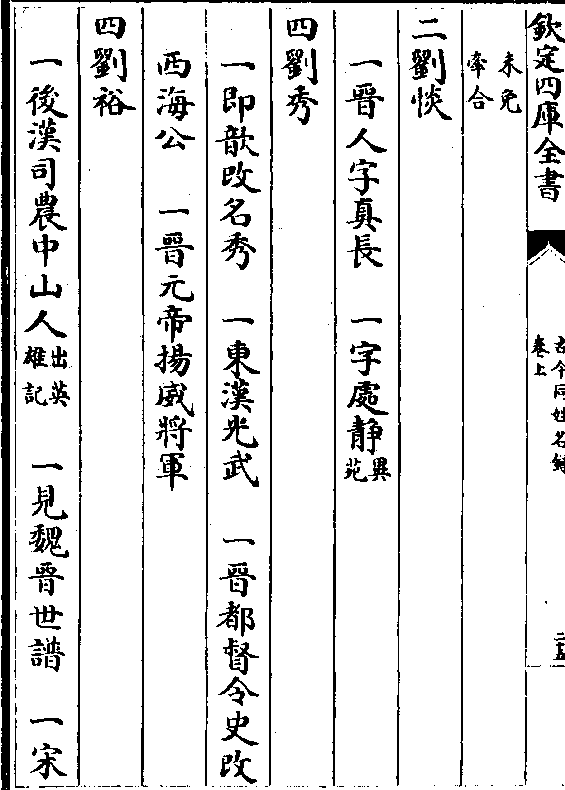 欽定四庫全書
古今同姓名錄
卷上
二五
未免
牽合
二劉惔
一晉人字真長　一字處静異苑
四劉秀
一即歆改名秀　一東漢光武　一晉都督令史改
西海公　一晉元帝揚威將軍
四劉裕
一後漢司農中山人出英雄記　一見魏晉世譜　一宋